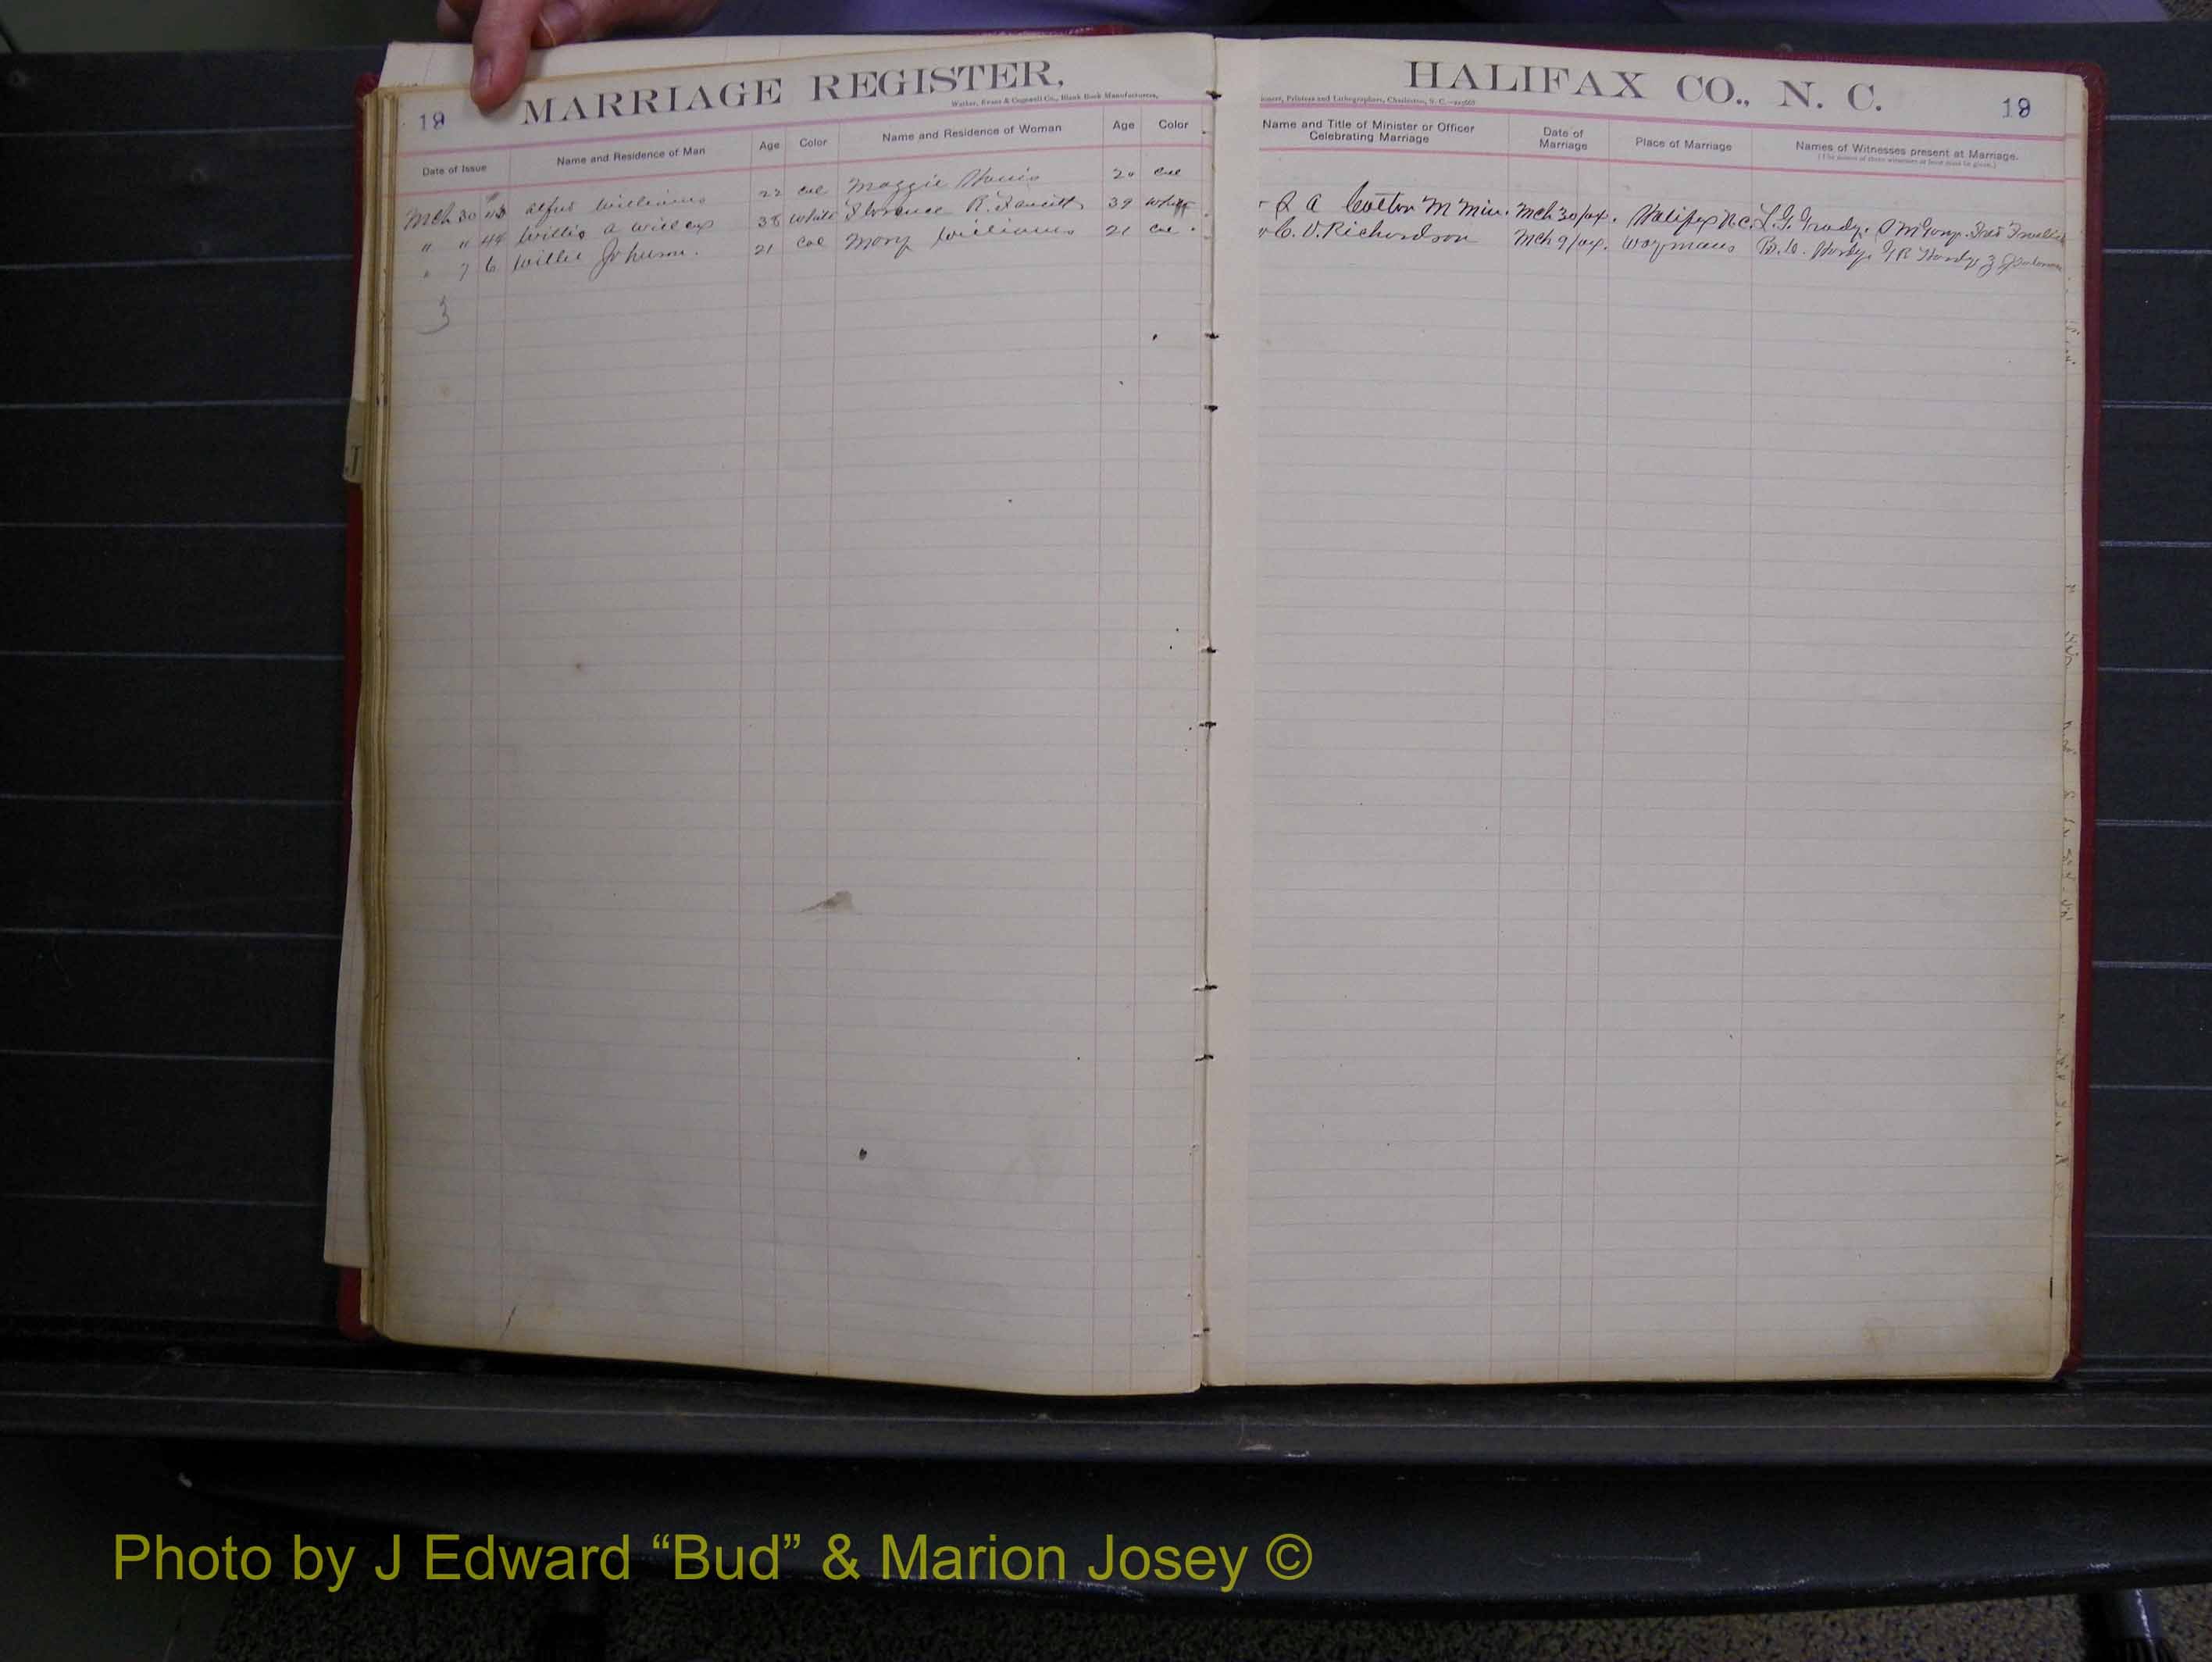 19 MARRIAGE REGISTER,
Walker, Evans & Cogswell Co., Blank Book Manufacturers,
Date of Issue Name and Residence of Man Age Color Name and Residence of Woman Age Color
Mch 30 Williams 22 col Maggie 20 col
" " 44 Willis A Willcox 38 White Florence R. 39 White
" 7 6 Willie Johnson. 21 Col Mary Williams 21 Col.
3
HALIFAX CO., N. C. 19
Printers and Lithographers, Charleston, S. C.
Name and Title of Minister or Officer Celebrating Marriage Date of Marriage Place of Marriage Names of Witnesses present at Marriage.
(The names of three witnesses at least must be given.)
A Cotton M Min. Mch 30/04. Halifax N.C. L.G. Grady.
C. V. Richardson Mch 9/04. Waymans
J
Photo by J Edward “Bud” & Marion Josey ©